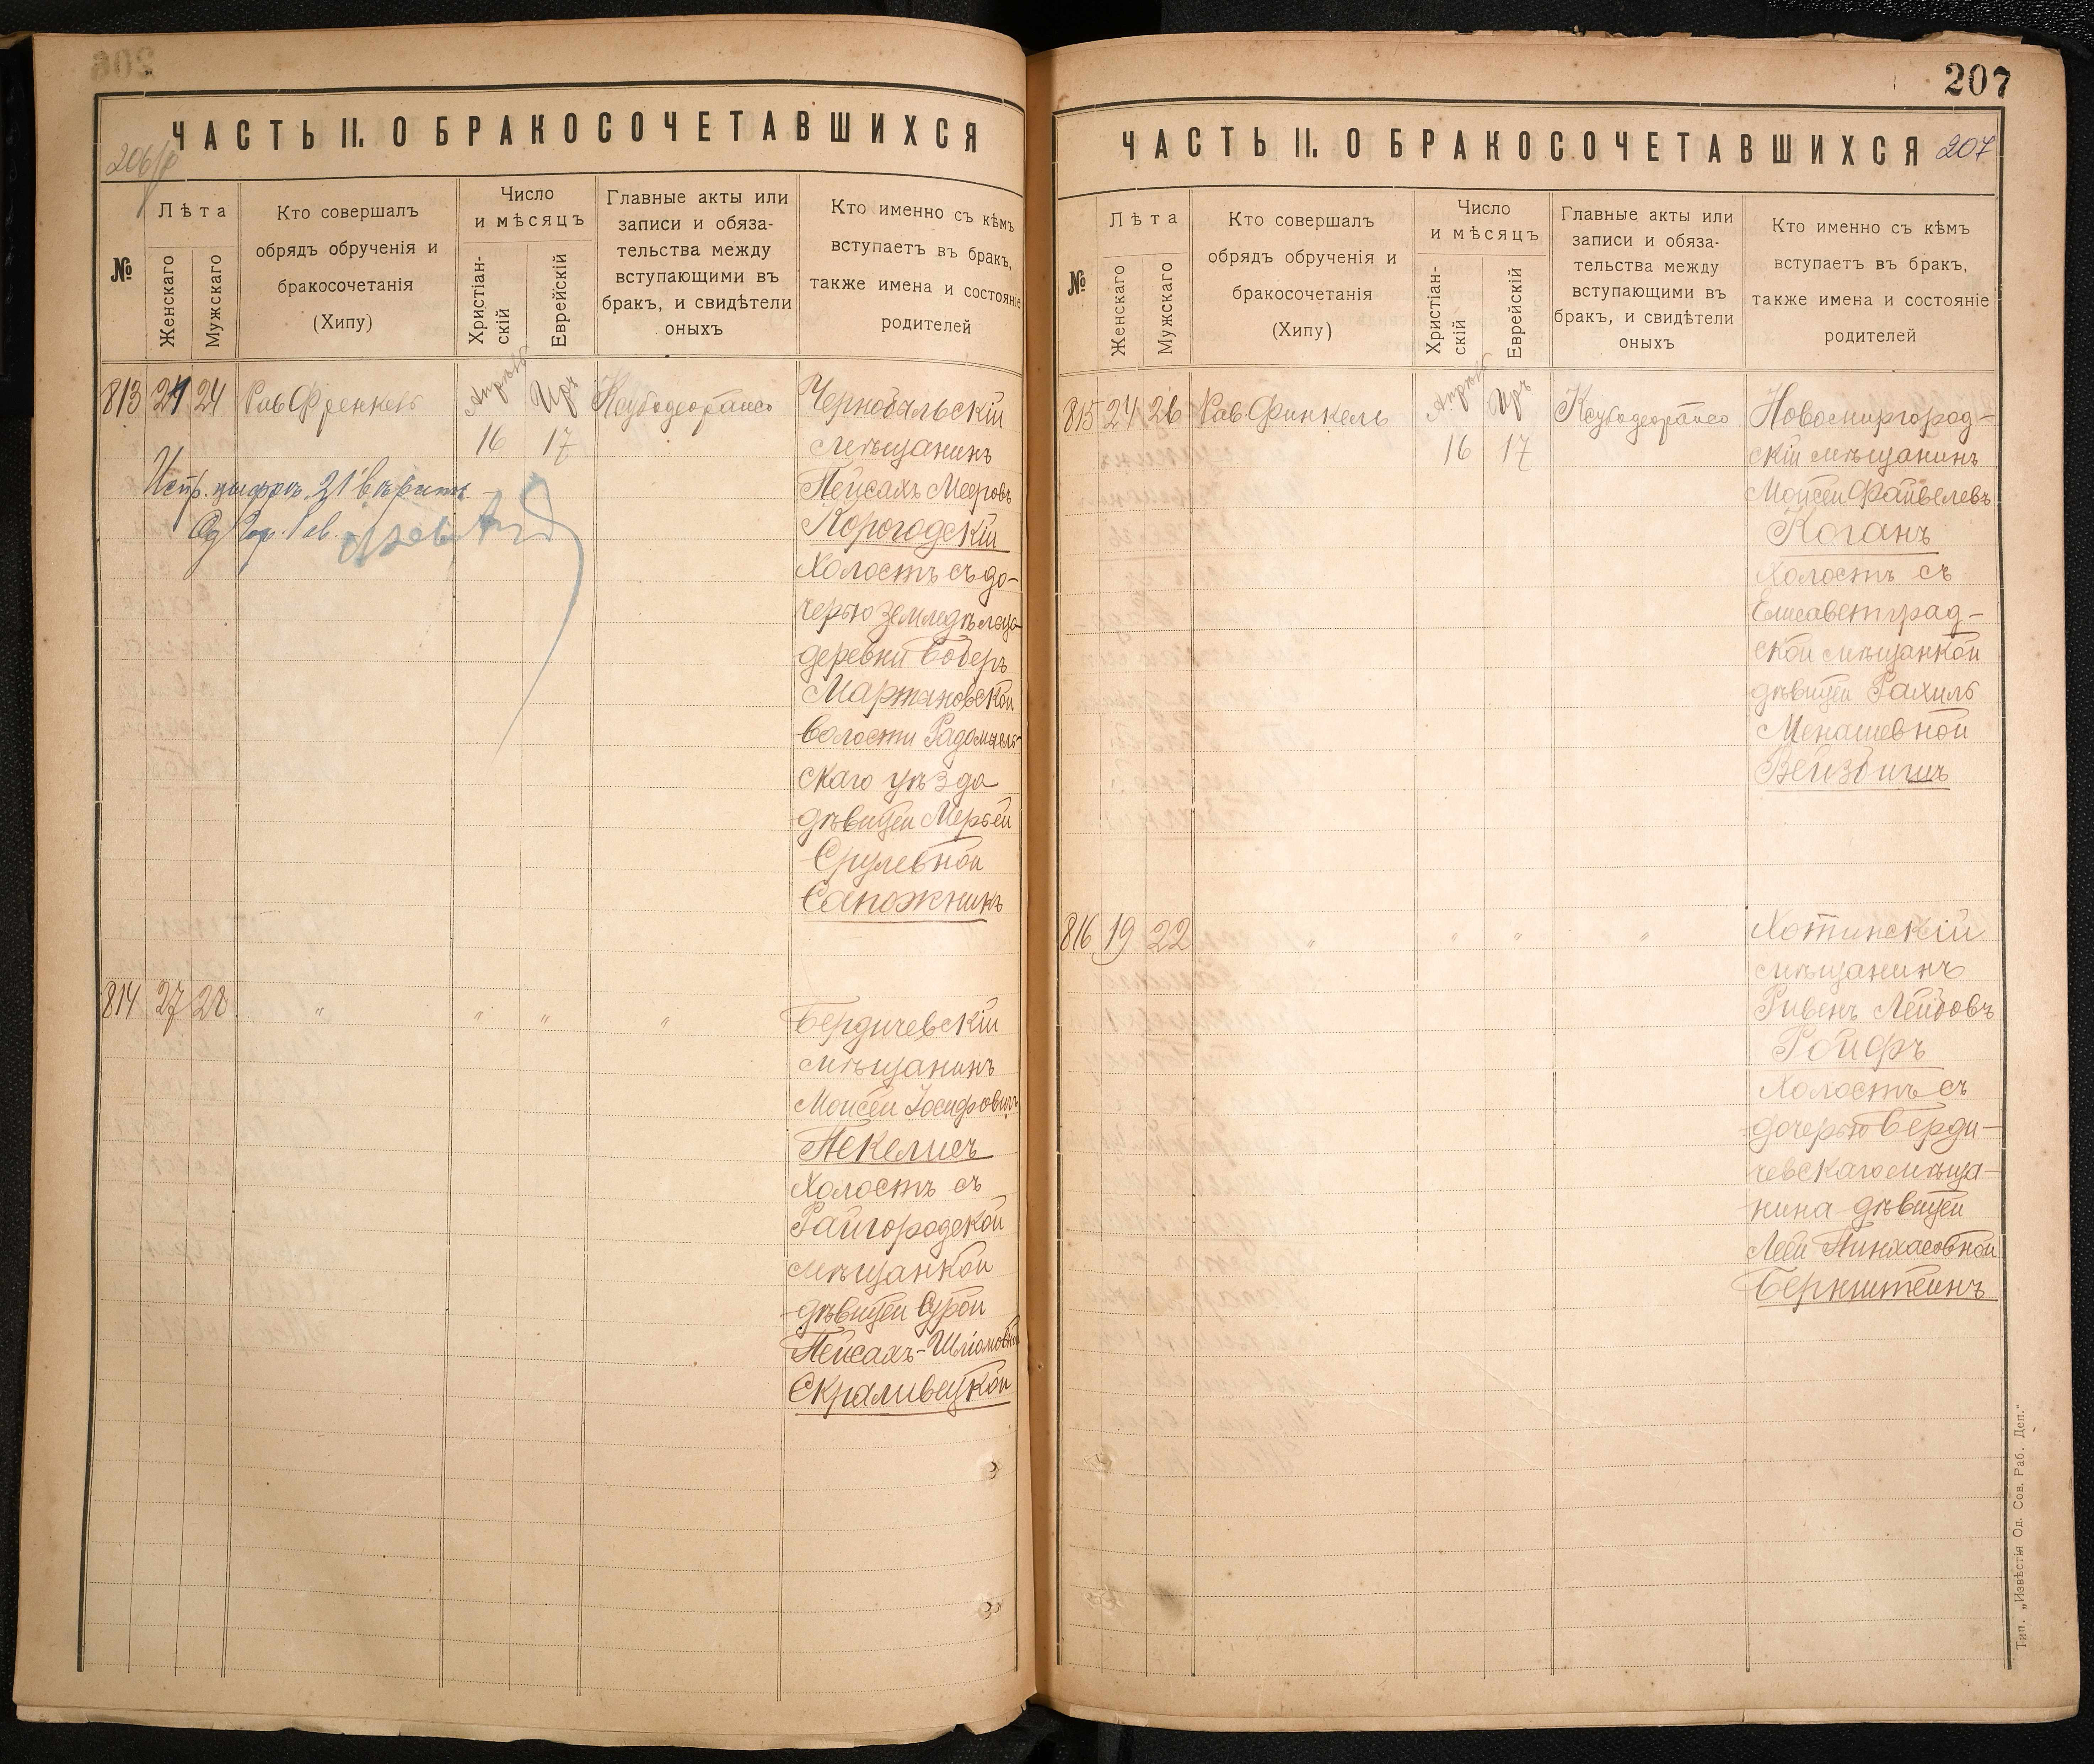 206
ЧАСТЬ II. О БРАКОСОЧЕТАВШИХСЯ
№
Лѣта
Женскаго
Мужскаго
Кто совершалъ
обрядъ обрученія и
бракосочетанія
(Хипу)
Число
и мѣсяцъ
Христіан-
скій
Еврейскій
Главные акты или
записи и обяза-
тельства между
вступающими въ
бракъ, и свидѣтели
оныхъ
Кто именно съ кѣмъ
вступаетъ въ бракъ,
также имена и состояніе
родителей
813 21 24 Рав. Френкель Апрѣль Иръ
16 17
Испр. цифра 21 вѣрить
Од. Гор. Рав.
Чернобыльскій
мѣщанинъ
Пейсахъ Мееровъ
Корогодскій
Холостъ съ до-
черью земледѣльца
деревни Боберъ
Мартановской
волости Радомысль-
скаго уѣзда
дѣвицей Мерьей
Срулевной
Сапожникъ
814 27 28 " " " "
Бердичевскій
мѣщанинъ
Моисей Іосифовичъ
Пекелисъ
Холостъ съ
Райгородской
мѣщанкой
дѣвицей Сурой
Пейсахъ-Шліомовной
Скраливецкой
207
ЧАСТЬ II. О БРАКОСОЧЕТАВШИХСЯ 207
№
Лѣта
Женскаго
Мужскаго
Кто совершалъ
обрядъ обрученія и
бракосочетанія
(Хипу)
Число
и мѣсяцъ
Христіан-
скій
Еврейскій
Главные акты или
записи и обяза-
тельства между
вступающими въ
бракъ, и свидѣтели
оныхъ
Кто именно съ кѣмъ
вступаетъ въ бракъ,
также имена и состояніе
родителей
815 24 26 Рав. Финкель Апрѣль Иръ
16 17
Новомиргород-
скій мѣщанинъ
Моисей Файвелевъ
Коганъ
Холостъ съ
Елисаветград-
ской мѣщанкой
дѣвицей Рахиль
Менашевной
Вейзбигъ
816 19 22 " " " "
Хотинскій
мѣщанинъ
Ривенъ Лейбовъ
Ройфъ
Холостъ съ
дочерью Берди-
чевскаго мѣща-
нина дѣвицей
Леей Пинхасовной
Бернштейнъ
Тип. „Извѣстія Од. Сов. Раб. Деп."